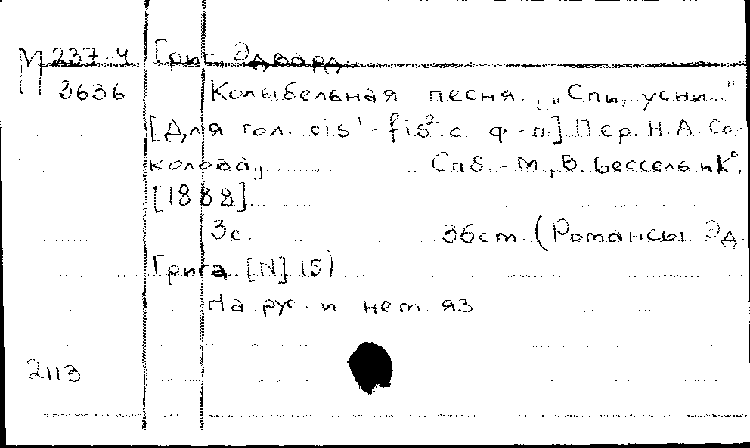 М 237-4 Григ Эдвард
3636 Колыбельная песня. „Спи, усни..."
[Для гол. cis¹-fis² с ф-п.] Пер. Н. А. Со-
колова, Спб.-М., В. Бессель и К°,
[1888].
3с. 36 cm. (Романсы Эд.
Грига. [N] 15)
На рус. и нем. яз
2113